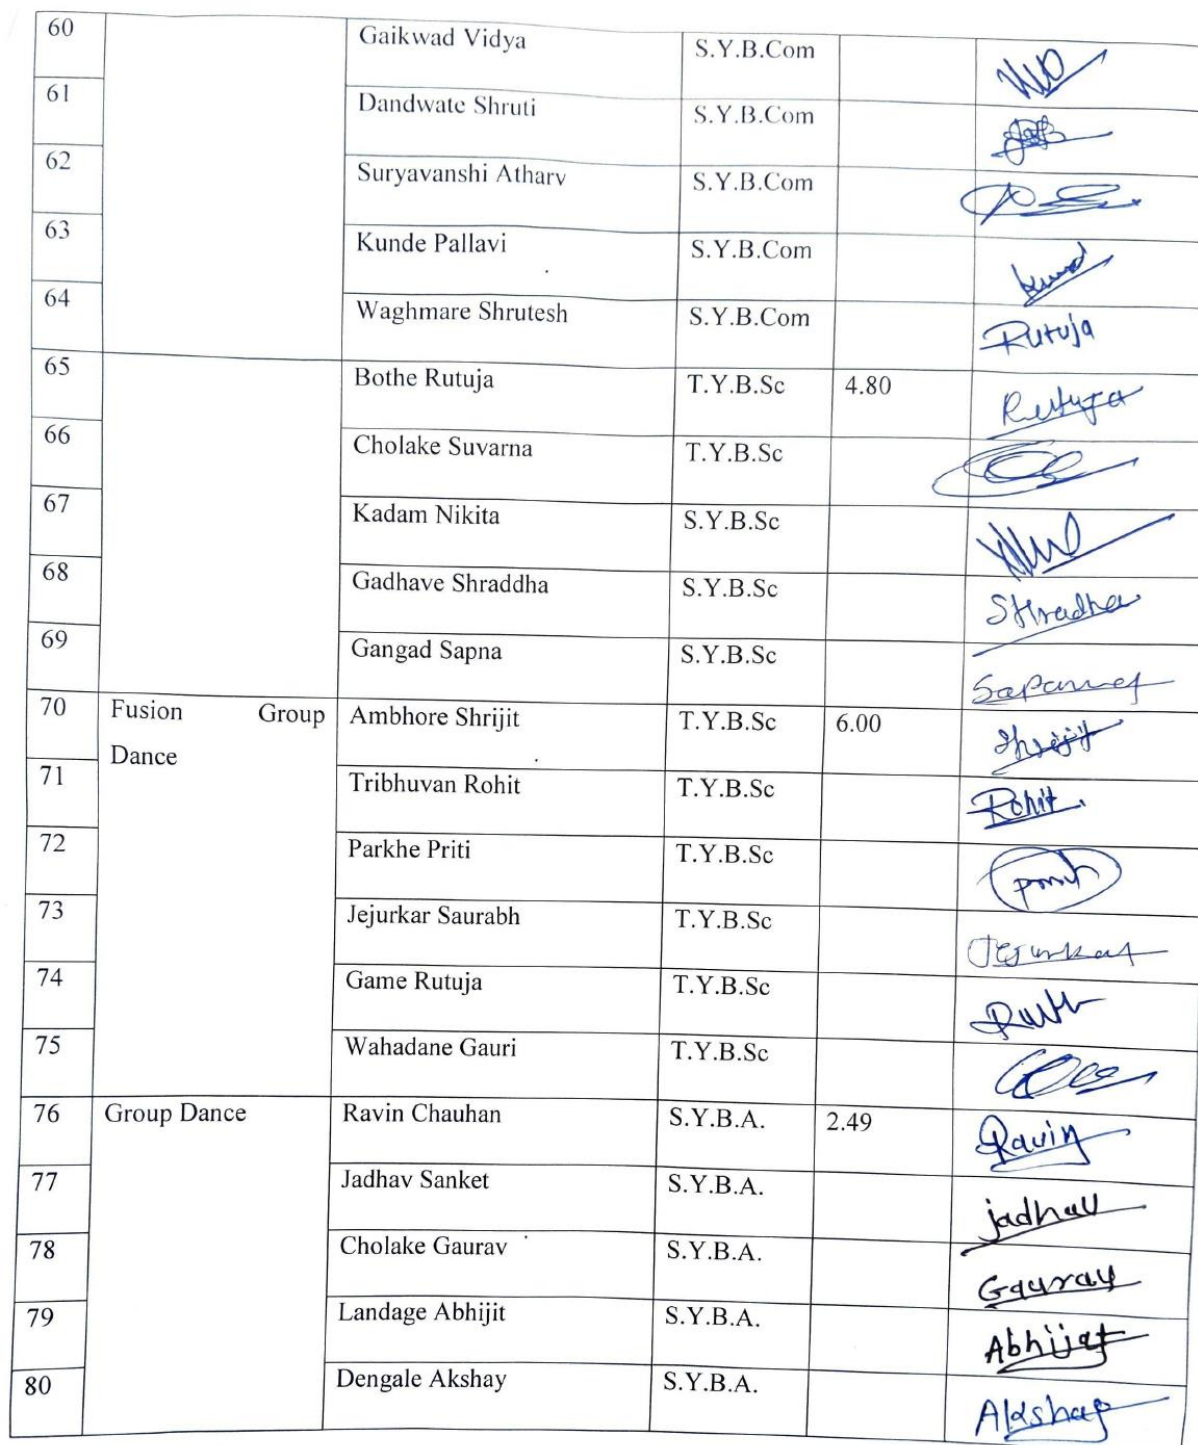 60 Gaikwad Vidya S.Y.B.Com
61 Dandwate Shruti S.Y.B.Com
62 Suryavanshi Atharv S.Y.B.Com
63 Kunde Pallavi S.Y.B.Com
64 Waghmare Shrutesh S.Y.B.Com Rutuja
65 Bothe Rutuja T.Y.B.Sc 4.80 Rutuja
66 Cholake Suvarna T.Y.B.Sc
67 Kadam Nikita S.Y.B.Sc
68 Gadhave Shraddha S.Y.B.Sc
69 Gangad Sapna S.Y.B.Sc
70 Fusion Group Ambhore Shrijit T.Y.B.Sc 6.00 Shrijit
Dance
71 Tribhuvan Rohit T.Y.B.Sc Rohit.
72 Parkhe Priti T.Y.B.Sc
73 Jejurkar Saurabh T.Y.B.Sc Jejurkar
74 Game Rutuja T.Y.B.Sc
75 Wahadane Gauri T.Y.B.Sc
76 Group Dance Ravin Chauhan S.Y.B.A. 2.49 Ravin
77 Jadhav Sanket S.Y.B.A. jadhav
78 Cholake Gaurav S.Y.B.A. Gaurav
79 Landage Abhijit S.Y.B.A. Abhijit
80 Dengale Akshay S.Y.B.A. Akshay